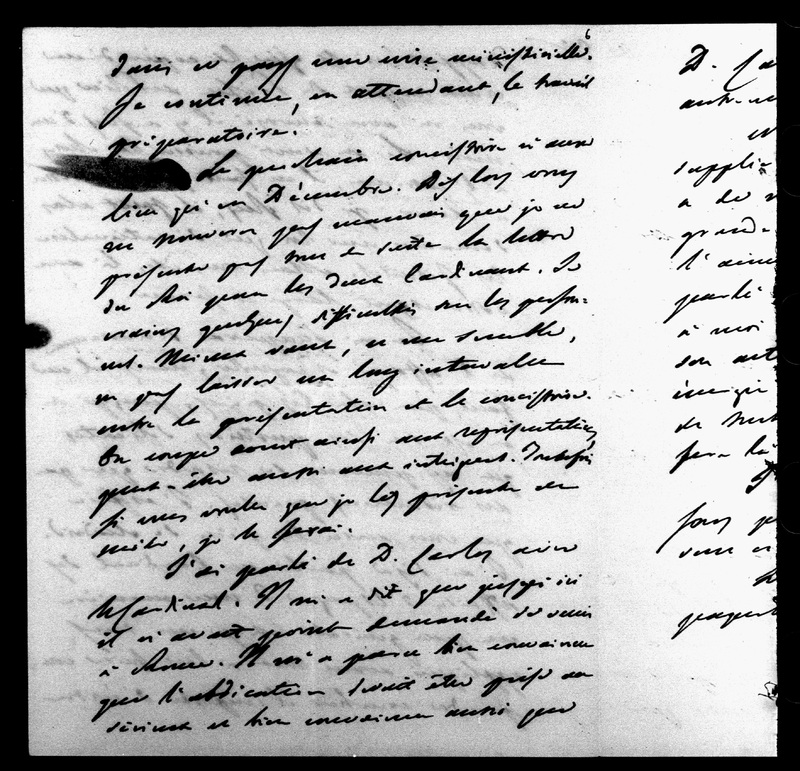 6
dans ce pays une crise ministérielle.
Je continue, en attendant, le travail
préparatoire.
Le prochain consistoire n'aura
lieu qu'en Décembre. Dès lors vous
ne trouverez pas mauvais que je ne
présente pas tout de suite la lettre
du Roi pour les deux Cardinaux. Je
crains quelques difficultés sur les person-
nes. Mieux vaut, ce me semble,
ne pas laisser un long intervalle
entre la présentation et le consistoire.
On coupe court ainsi aux représentations
peut-être aussi aux intrigues. Toutefois
si vous voulez que je les présente de
suite, je le ferai.
J'ai parlé de D. Carlos avec
le Cardinal. Il m'a dit que jusqu'ici
il n'avait point demandé de venir
à Rome. Il m'a paru bien convaincu
que l'abdication devait être prise au
sérieux et bien convaincu aussi que
D. Ca
supplia-
a de
grand-
l'
parlé
à moi
son
de
fera